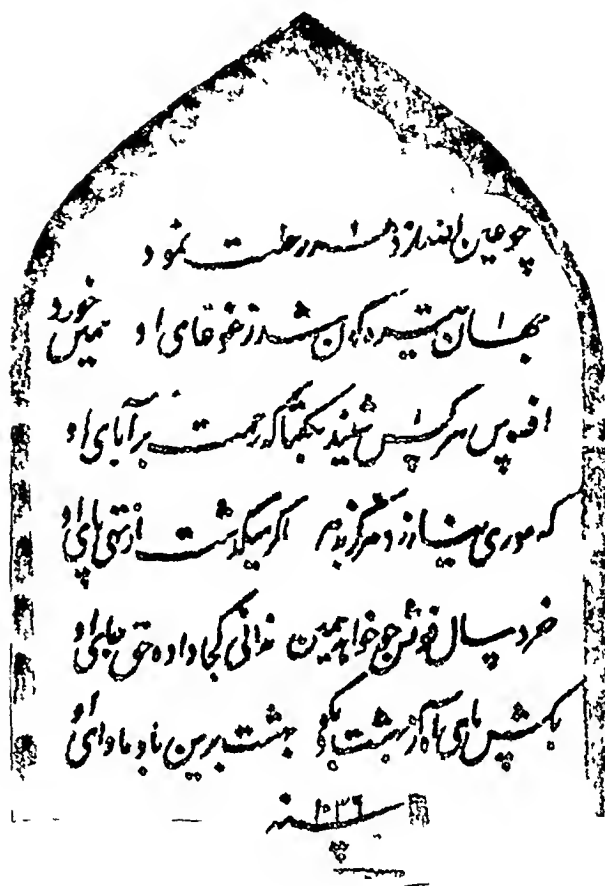 چو عین الله از دهر رحلت نمود
جهان تیره گون شد ز غوغای او
همین خورد افسوس هر کس شنید بگفتا که رحمت بر آبای او
که موری نیازرد هرگز بدهر اگر میگذشت از ته پای او
خرد سال فوتش چو خواهد همین ندانی کجا داده حق جای او
بکش پس پای بهشت بگو بهشت برین باد ماوای او
سنه ۱۰۳۶